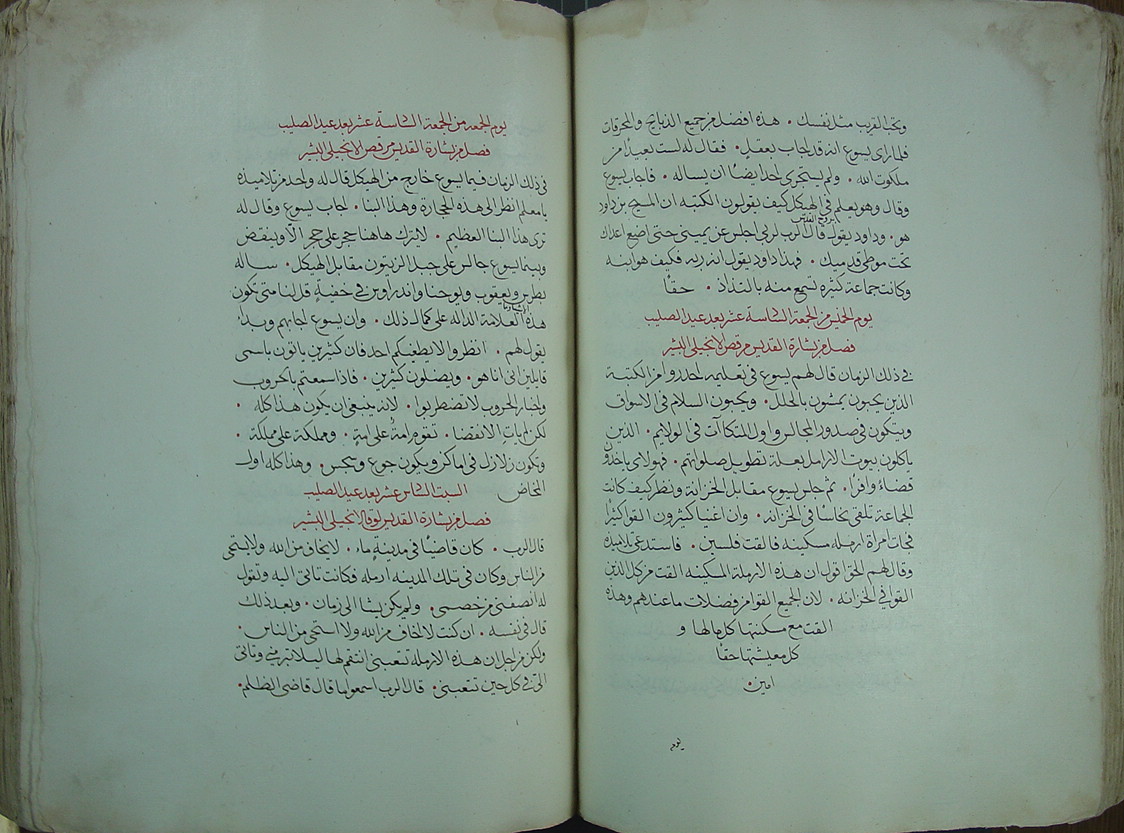 وتحب القريب مثل نفسك . هذه افضل من جميع الذبايح والمحرقات
فلما راى يسوع انه قد اجاب بعقل . فقال له لست بعيدًا من
ملكوت الله . ولم يستجرى احد ايضًا ان يساله . فاجاب يسوع
وقال وهو يعلم في الهيكل كيف يقولون الكتبه ان المسيح بن داود
بروح القدس
هو . وداود يقول قال الرب لربي اجلس عن يميني حتى اضع اعداك
تحت موطى قدميك . فهذا داود يقول انه ربه فكيف هو ابنه
وكانت جماعة كثيره تسمع منه بالتذاذ . حقًا
يوم الخميس من الجمعة السادسة عشر بعد عيد الصليب
فصل من بشارة القديس مرقص الانجيلي البشير
في ذلك الزمان قال لهم يسوع في تعليمه احذروا من الكتبة
الذين يحبون يمشون بالحلل . ويحبون السلام في الاسواق
ويتكون في صدور المجالس واول المتكاآت في الولايم . الذين
ياكلون بيوت الارامل بعلة تطويل صلواتهم . فهولاى ياخذون
قضاءً وافرًا . ثم جلس يسوع مقابل الخزانة ونظر كيف كانت
الجماعة تلقى نحاسًا في الخزانه . وان اغنيا كثيرون القوا كثيرًا
فجات امراة ارمله مسكينه فالقت فلسين . فاستدعى تلاميذه
وقال لهم الحق اقول ان هذه الارملة المسكينه القت من كل الذين
القوا في الخزانه . لان الجميع القوا من فضلات ما عندهم وهذه
القت مع مسكنتها كل مالها و
كل معيشتها حقًا
امين .
يوم
يوم الجمعه من الجمعة السادسة عشر بعد عيد الصليب
فصل من بشارة القديس مرقص الانجيلي البشير
في ذلك الزمان فيما يسوع خارج من الهيكل قال له واحد من تلاميذه
يا معلم انظر الى هذه الحجارة وهذا البنا . اجاب يسوع وقال له
ترى هذا البنا العظيم . لا يترك هاهنا حجر على حجر الّا وينقض
وبينما يسوع جالس على جبل الزيتون مقابل الهيكل . ساله
بطرس ويعقوب ويوحنا واندراوس في خفيةٍ قل لنا متى تكون
هذه العلامة الداله على كمال ذلك . وان يسوع اجابهم وبدا
يقول لهم . انظروا لا يطغيكم احد فان كثيرين ياتون باسمى
قايلين انى انا هو . ويضلون كثيرين . فاذا سمعتم بالحروب
واخبار الحروب لا تضطربوا . لانه ينبغى ان يكون هذا كله .
لكن لم يات الانقضا . تقوم امةٌ على امةٍ . ومملكة على مملكة .
وتكون زلازل في اماكن ويكون جوع وسجس . وهذا كله اول
المخاض
السبت السادس عشر بعد عيد الصليب
فصل من بشارة القديس لوقا الانجيلي البشير
قال الرب . كان قاضيًا في مدينةٍ ماء . لا يخاف من الله ولا يستحى
من الناس وكان في تلك المدينه ارمله فكانت تاتى اليه وتقول
له انصفنى من خصمى . ولم يكن يشا الى زمان . وبعد ذلك
قال في نفسه . ان كنت لا اخاف من الله ولا استحى من الناس .
ولكن من اجل ان هذه الارمله تتعبنى انتقم لها ليلا تبرمنى وتاتى
الىّ في كل حين تتعبنى . قال الرب اسمعوا ما قال قاضى الظلم .